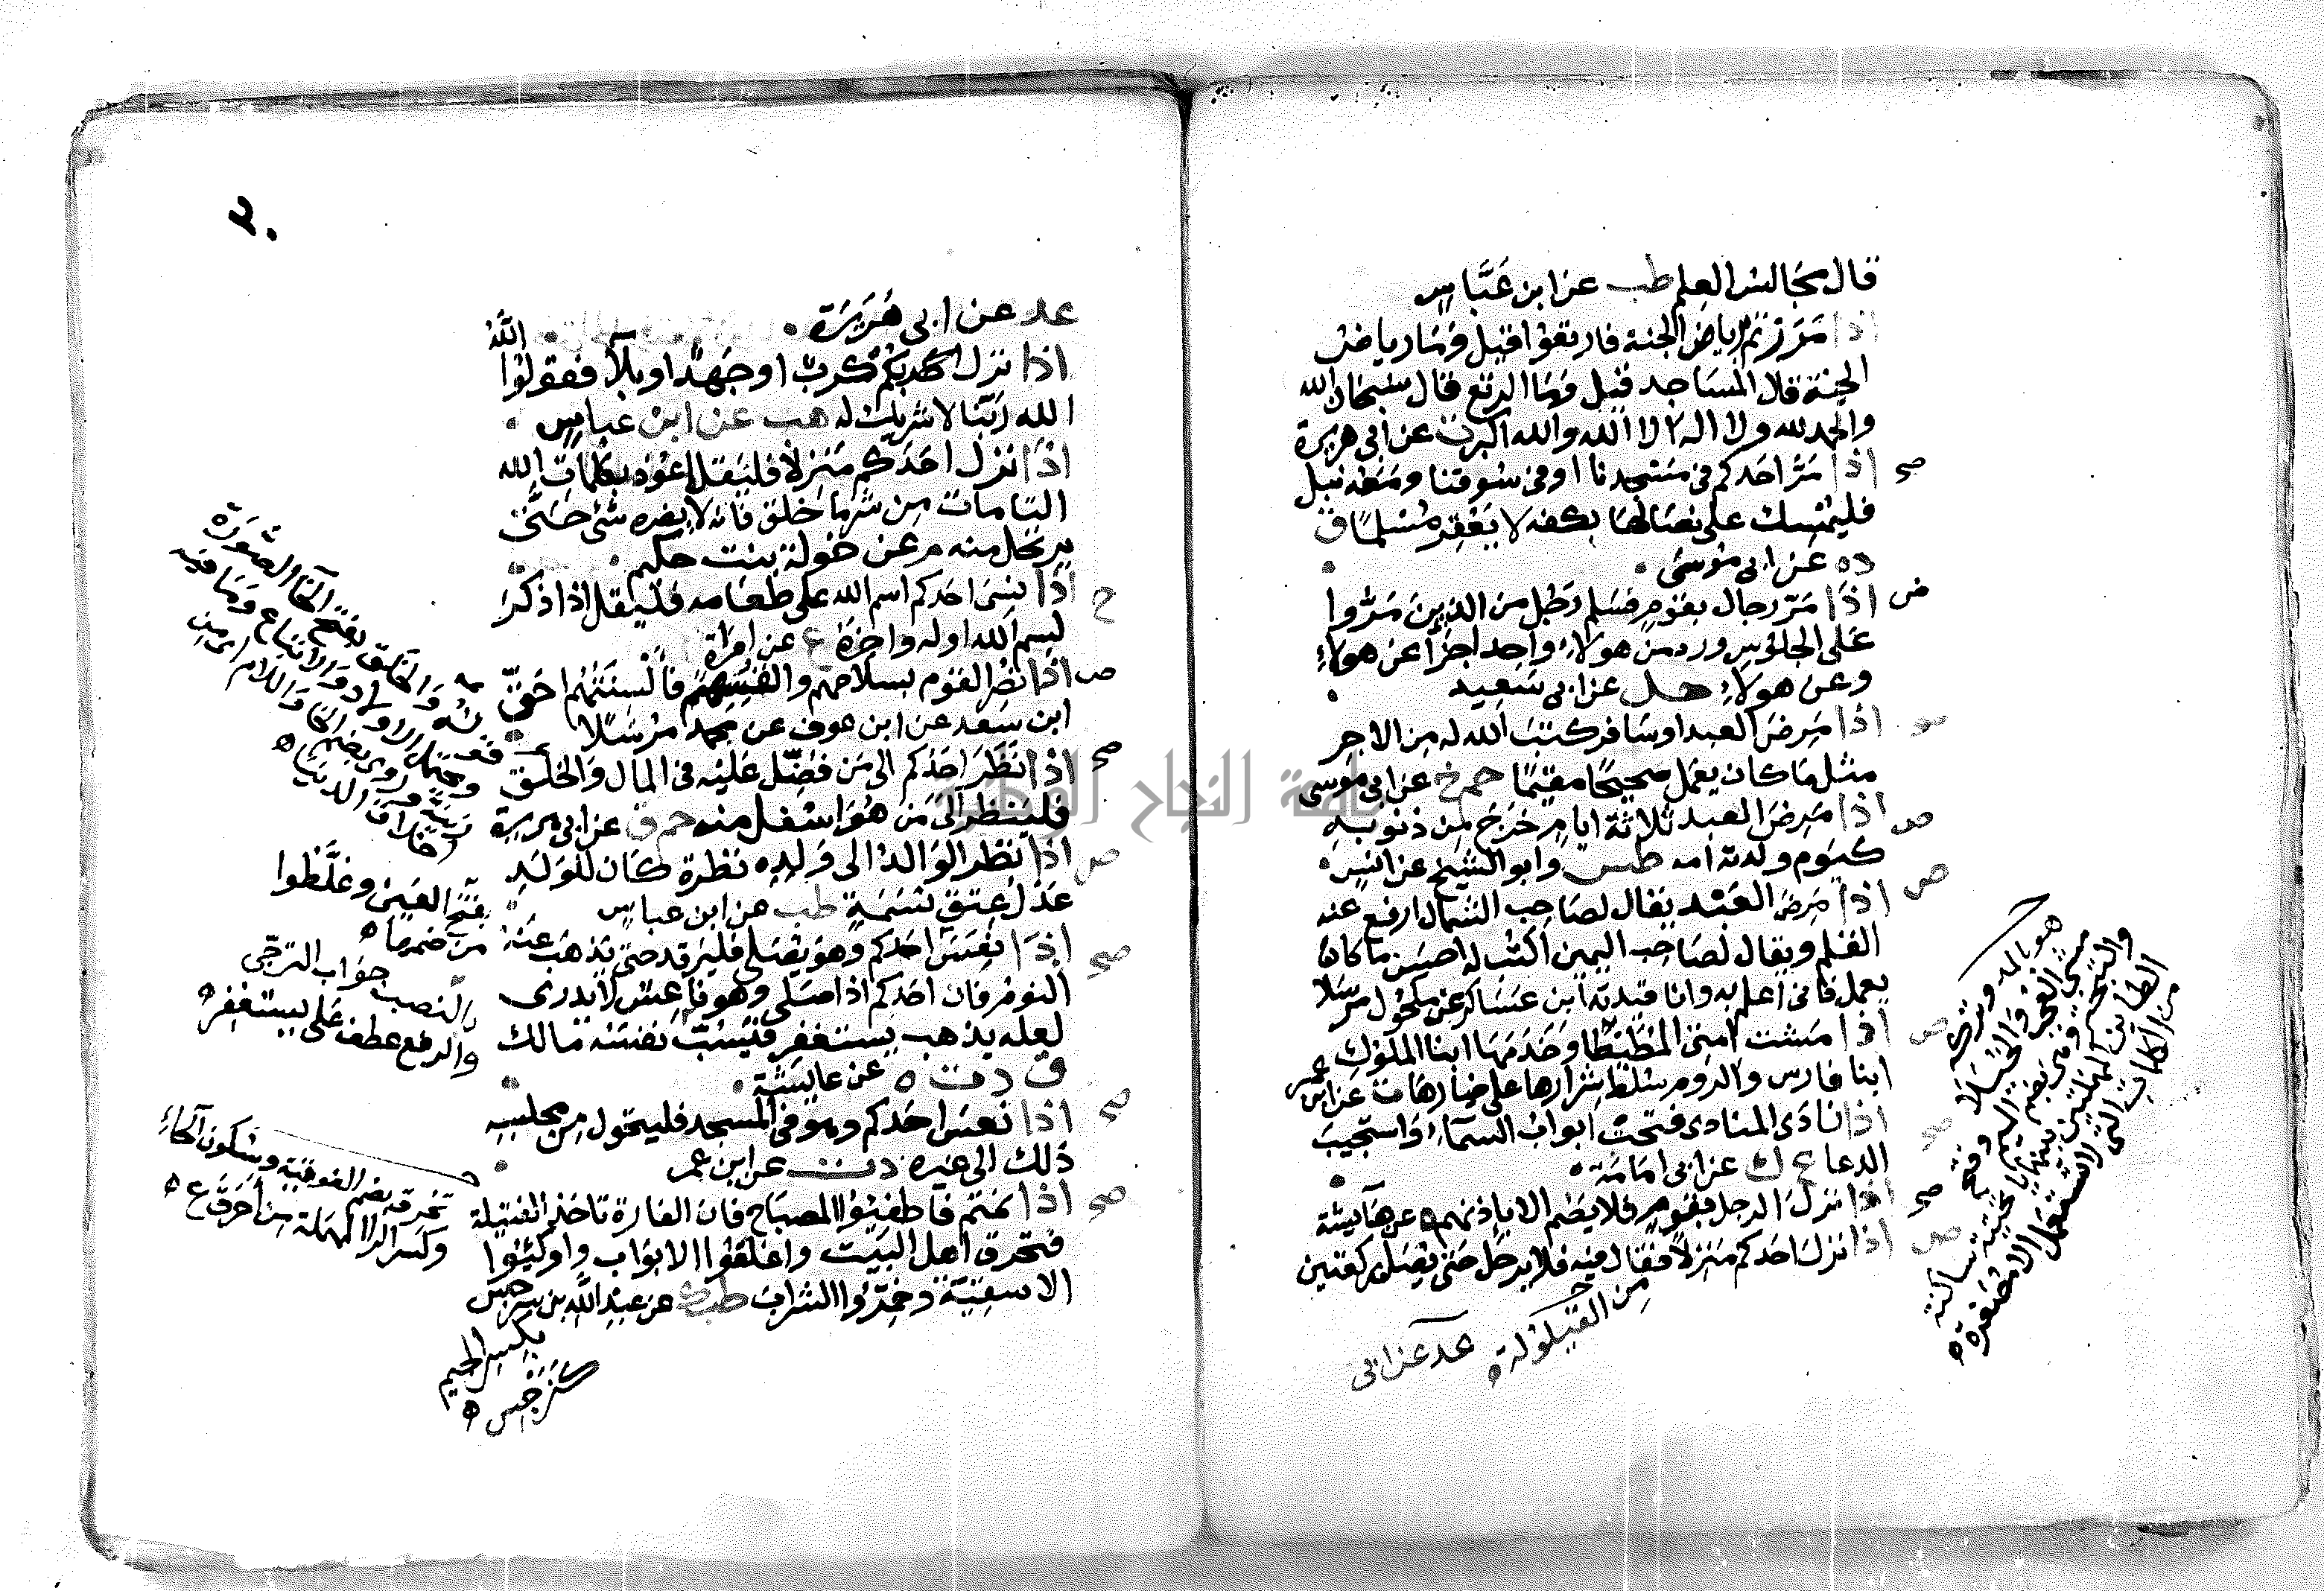 قال مجالس العلم طب عن ابن عباس
اذا مررتم برياض الجنة فارتعوا قيل وما رياض
الجنة قال المساجد قيل وما الرتع قال سبحان الله
والحمد لله ولا اله الا الله والله اكبر ت عن ابى هريرة
صح اذا مر احدكم فى مسجدنا او فى سوقنا ومعه نبل
فليمسك على نصالها بكفه لا يعقر مسلما ق
د ه عن ابى موسى
ض اذا مر رجال بقوم فسلم رجل من الذين مروا
على الجالوس ورد من هولاء واحد اجزا عن هولاء
وعن هولاء حل عن ابى سعيد
صح اذا مرض العبد او سافر كتب الله له من الاجر
مثل ما كان يعمل صحيحا مقيما حم خ عن ابى موسى
ض اذا مرض العبد ثلاثة ايام خرج من ذنوبه
كيوم ولدته امه طس وابو الشيخ عن انس
ض اذا مرض العبد يقال لصاحب الشمال ارفع عنه
القلم ويقال لصاحب اليمين اكتب له احسن ما كان
يعمل فانى اعلم به وانا قيدته ابن عساكر عن مكحول مرسلا
ض اذا مشت امتى المطيطا وخدمها ابنا الملوك
ابنا فارس والروم سلط شرارها على خيارها ت عن ابن عمر
صح اذا نادى المنادى فتحت ابواب السماء واستجيب
الدعا ع ك عن ابى امامة
صح اذا نزل الرجل بقوم فلا يضم الا باذنهم ه عن عآيشة
ض اذا نزل احدكم منزلا فقال فيه فلا يرحل حتى يصلى ركعتين
من القيلولة
عد عن ابى
هو بالمد
من الكلمات التى
٢٠
عد عن ابى هريرة
اذا نزل احدكم كرب او جهد او بلآ فقولوا الله
الله ربنا لا شريك له هب عن ابن عباس
اذا نزل احدكم منزلا فليقل اعوذ بكلمات الله
التامات من شر ما خلق فانه لا يضره شئ حتى
يرتحل منه م عن خولة بنت حكيم
ح اذا نسى احدكم اسم الله على طعامه فليقل اذا ذكر
بسم الله اوله واخره ع عن امراة
ض اذا نصر القوم بسلاحهم وانفسهم فالسنتهم احق
ابن سعد عن ابن عوف عن محمد مرسلا
صح اذا نظر احدكم الى من فضل عليه فى المال والخلق
فلينظر الى من هو اسفل منه حم ق عن ابى هريرة
ض اذا نظر الوالد الى ولده نظرة كان للولد
عدل عتق نسمة طب عن ابن عباس
صح اذا نعس احدكم وهو يصلى فليرقد حتى يذهب عنه
النوم فان احدكم اذا صلى وهو ناعس لا يدرى
لعله يذهب يستغفر فيسب نفسه مالك
ق د ت ه عن عايشة
صح اذا نعس احدكم وهو فى المسجد فليتحول من مجلسه
ذلك الى غيره د ت عن ابن عمر
صح اذا نمتم فاطفيوا المصباح فان الفارة تاخذ الفتيلة
فتحرق اهل البيت واغلقوا الابواب واوكيوا
الاسقية وخمروا الشراب طب عن عبد الله بن سرجس
والخلق بفتح الخا الصورة
بفتح العين وغلطوا
من ضمها
بالنصب جواب الترجى
والرفع عطف على يستغفر
تحرق بضم الفوقية وسكون الحاء
وكسر الرا المهملة من احرق ع
بكسر الجيم
كنرجس
جامعة النجاح الوطنية